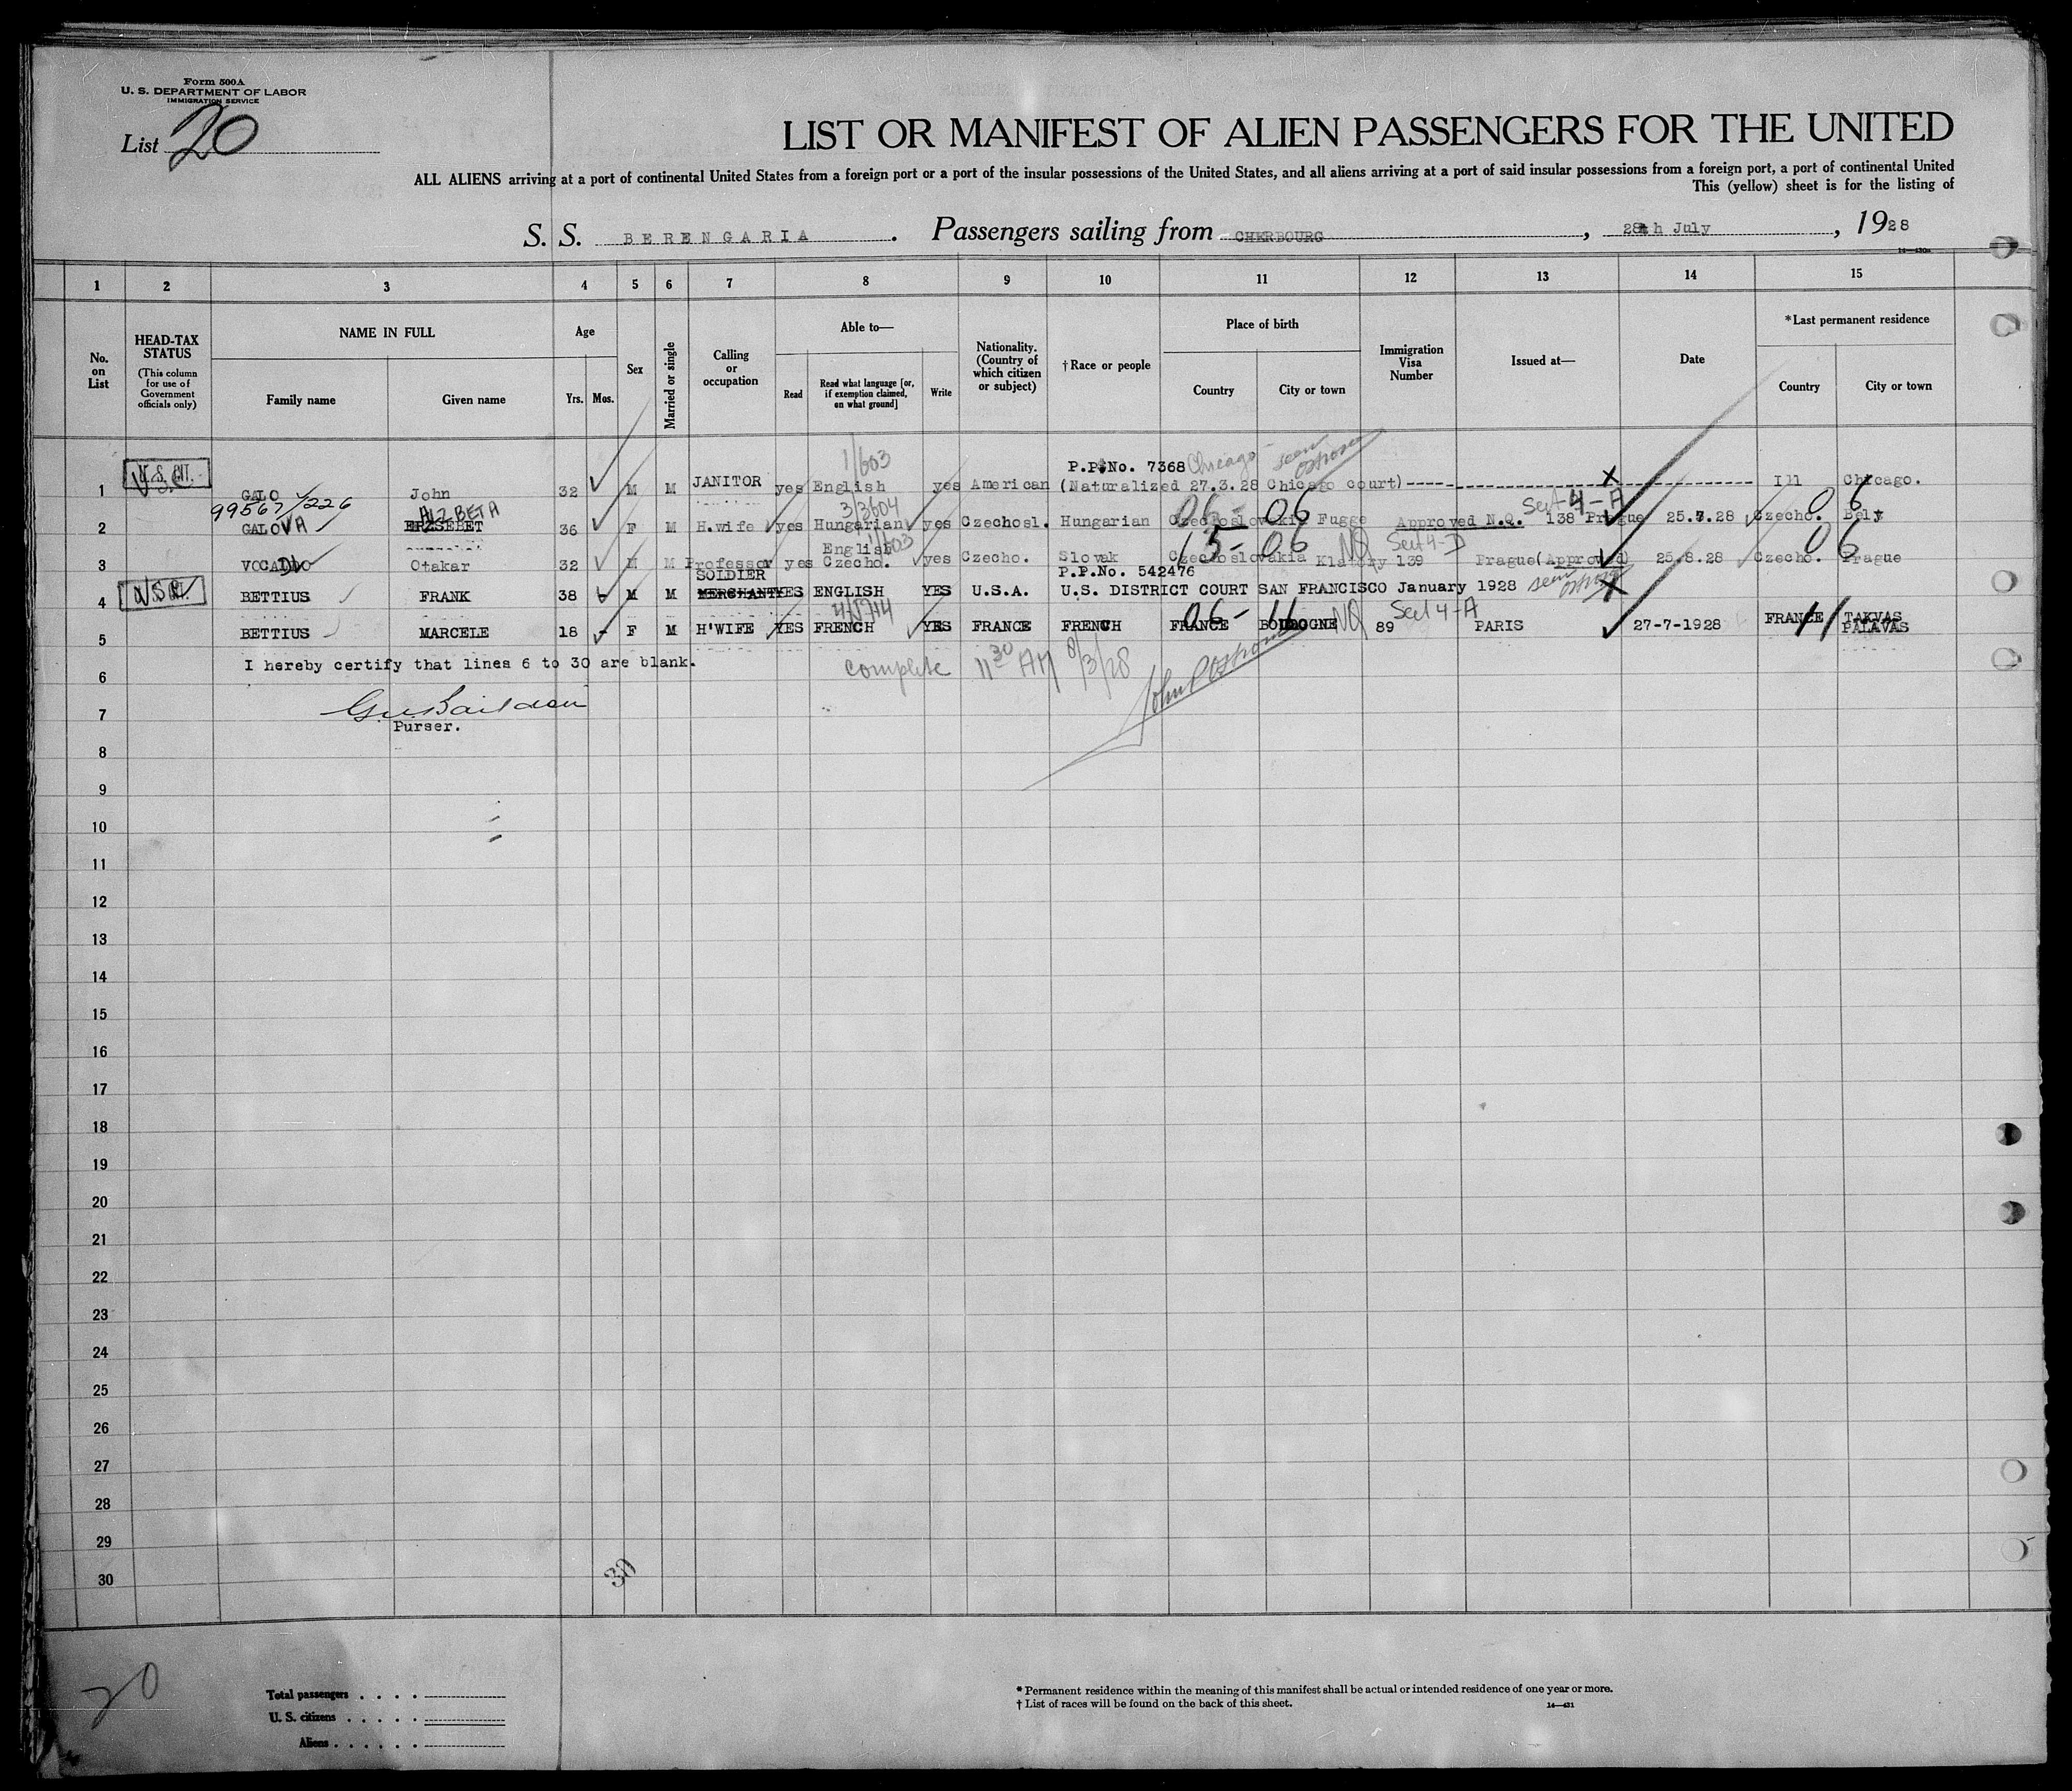 Form 500A
U. S. DEPARTMENT OF LABOR
IMMIGRATION SERVICE
List 20
LIST OR MANIFEST OF ALIEN PASSENGERS FOR THE UNITED
ALL ALIENS arriving at a port of continental United States from a foreign port or a port of the insular possessions of the United States, and all aliens arriving at a port of said insular possessions from a foreign port, a port of continental United
This (yellow) sheet is for the listing of
S. S. BERENGARIA. Passengers sailing from CHERBOURG, 28th July, 1928
1 2 3 4 5 6 7 8 9 10 11 12 13 14 15
No. on List
HEAD-TAX STATUS
(This column for use of Government officials only)
NAME IN FULL
Family name Given name
Age
Yrs. Mos.
Sex
Married or single
Calling or occupation
Able to—
Read
Read what language [or, if exemption claimed, on what ground]
Write
Nationality. (Country of which citizen or subject)
† Race or people
Place of birth
Country City or town
Immigration Visa Number
Issued at—
Date
*Last permanent residence
Country City or town
1/603
P.P.No. 7368 Chicago
1 U.S. CIT. GALO John 32 M M JANITOR yes English yes American (Naturalized 27.3.28 Chicago court) X Ill Chicago.
99567/226 ALZBETA 3/3604 06- 06 Sect 4-A 06
2 GALOVA ERZSEBET 36 F M H.wife yes Hungarian yes Czechosl. Hungarian Czechoslovakia Fugge Approved N.Q. 138 Prague 25.7.28 Czecho. Bely
English 1/603 15- 06 NQ Sect 4-D 06
3 VOCADLO Otakar 32 M M Professor yes Czecho. yes Czecho. Slovak Czechoslovakia Klatovy 139 Prague(Approved) 25.8.28 Czecho. Prague
SOLDIER P.P.No. 542476
4 BETTIUS FRANK 38 - M M MERCHANT YES ENGLISH YES U.S.A. U.S. DISTRICT COURT SAN FRANCISCO January 1928 X
06- 11 NQ Sect 4-A 11
5 BETTIUS MARCELE 18 - F M H'WIFE YES FRENCH YES FRANCE FRENCH FRANCE BOULOGNE 89 PARIS 27-7-1928 FRANCE PALAVAS
I hereby certify that lines 6 to 30 are blank.
complete 11 30 AM 8/3/28
6
7
Purser.
8
9
10
11
12
13
14
15
16
17
18
19
20
21
22
23
24
25
26
27
28
29
30
30
20
Total passengers . . . .
U. S. citizens . . . . .
Aliens . . . . . .
* Permanent residence within the meaning of this manifest shall be actual or intended residence of one year or more.
† List of races will be found on the back of this sheet. 14—431